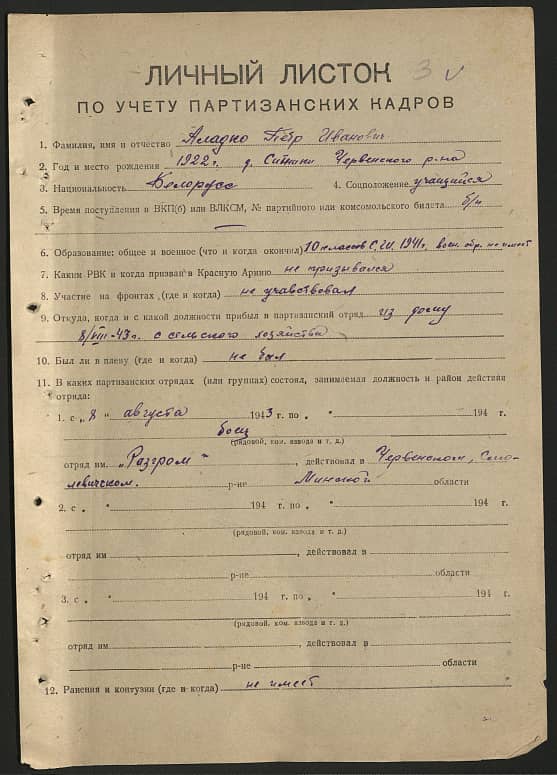 ЛИЧНЫЙ ЛИСТОК 3
ПО УЧЕТУ ПАРТИЗАНСКИХ КАДРОВ
1. Фамилия, имя и отчество Аладко Пётр Иванович
2. Год и место рождения 1922г. д. Ситники Червенского р-на
3. Национальность Белорусс 4. Соцположение учащийся
5. Время поступления в ВКП(б) или ВЛКСМ, № партийного или комсомольского билета б/п
6. Образование: общее и военное (что и когда окончил) 10 классов 1941г. воен. обр. не имеет
7. Каким РВК и когда призван в Красную Армию не призывался
8. Участие на фронтах (где и когда) не учавствовал
9. Откуда, когда и с какой должности прибыл в партизанский отряд из дому
8/VIII-43г. с сельского хозяйства
10. Был ли в плену (где и когда) не был
11. В каких партизанских отрядах (или группах) состоял, занимаемая должность и район действия
отряда:
1. с „8 " августа 1943 г. по „ " 194 г.
боец
(рядовой, ком. взвода и т. д.)
отряд им. „Разгром" , действовал в Червенском, Смо-
левичском. р-не Минской области
2. с „ " 194 г. по „ " 194 г.
(рядовой, ком. взвода и т. д.)
отряд им , действовал в
р-не области
3. с „ " 194 г. по „ " 194 г.
(рядовой, ком. взвода и т. д.)
отряд им , действовал в
р-не области
12. Ранения и контузии (где и когда) не имеет